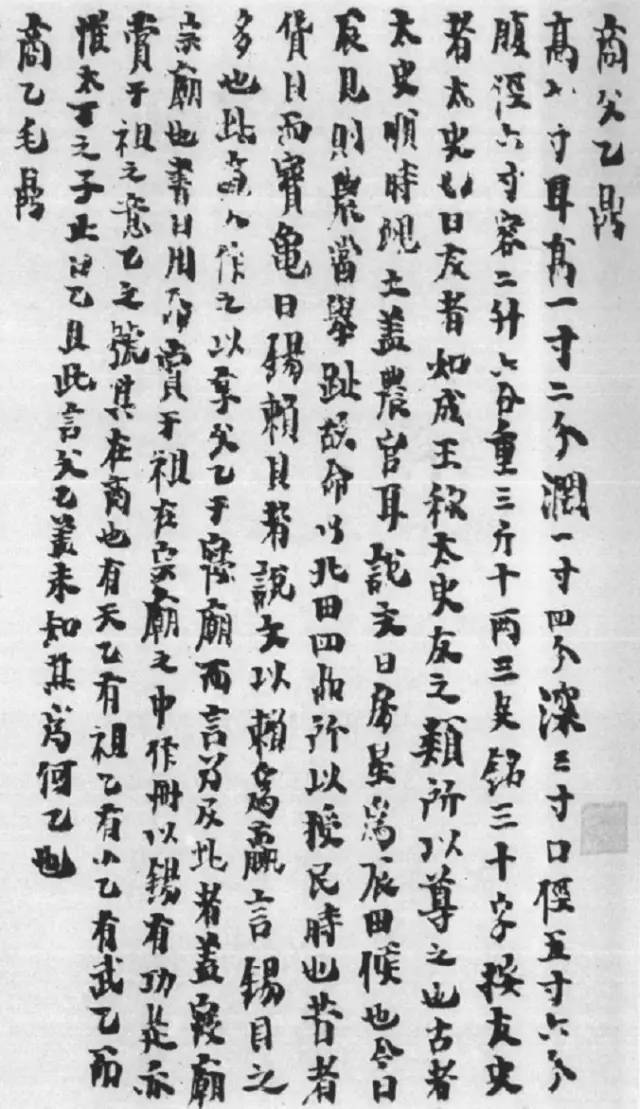 商父乙鼎
高六寸耳高一寸二分濶一寸四分深三寸口徑五寸六分
腹徑六寸容二升六合重三斤十兩三足銘三十字按友史
者太史也曰友者如成王称太史友之類所以尊之也古者
太史順時覛土盖農官耳說文曰房星為辰田候也今日
辰見則農當舉趾故命以北田四品所以授民時也昔者
貨貝而寶龜曰錫賴貝者說文以賴為贏言錫貝之
多也此商人作之以享父乙于寢廟而言及此者蓋寢廟
宗廟也書曰用命賞于祖在宗廟之中作冊以錫有功是亦
賞于祖之意乙之號其在商也有天乙有祖乙有小乙有武乙而
惟太丁之子止曰乙且此言父乙蓋未知其為何乙也
商乙毛鼎